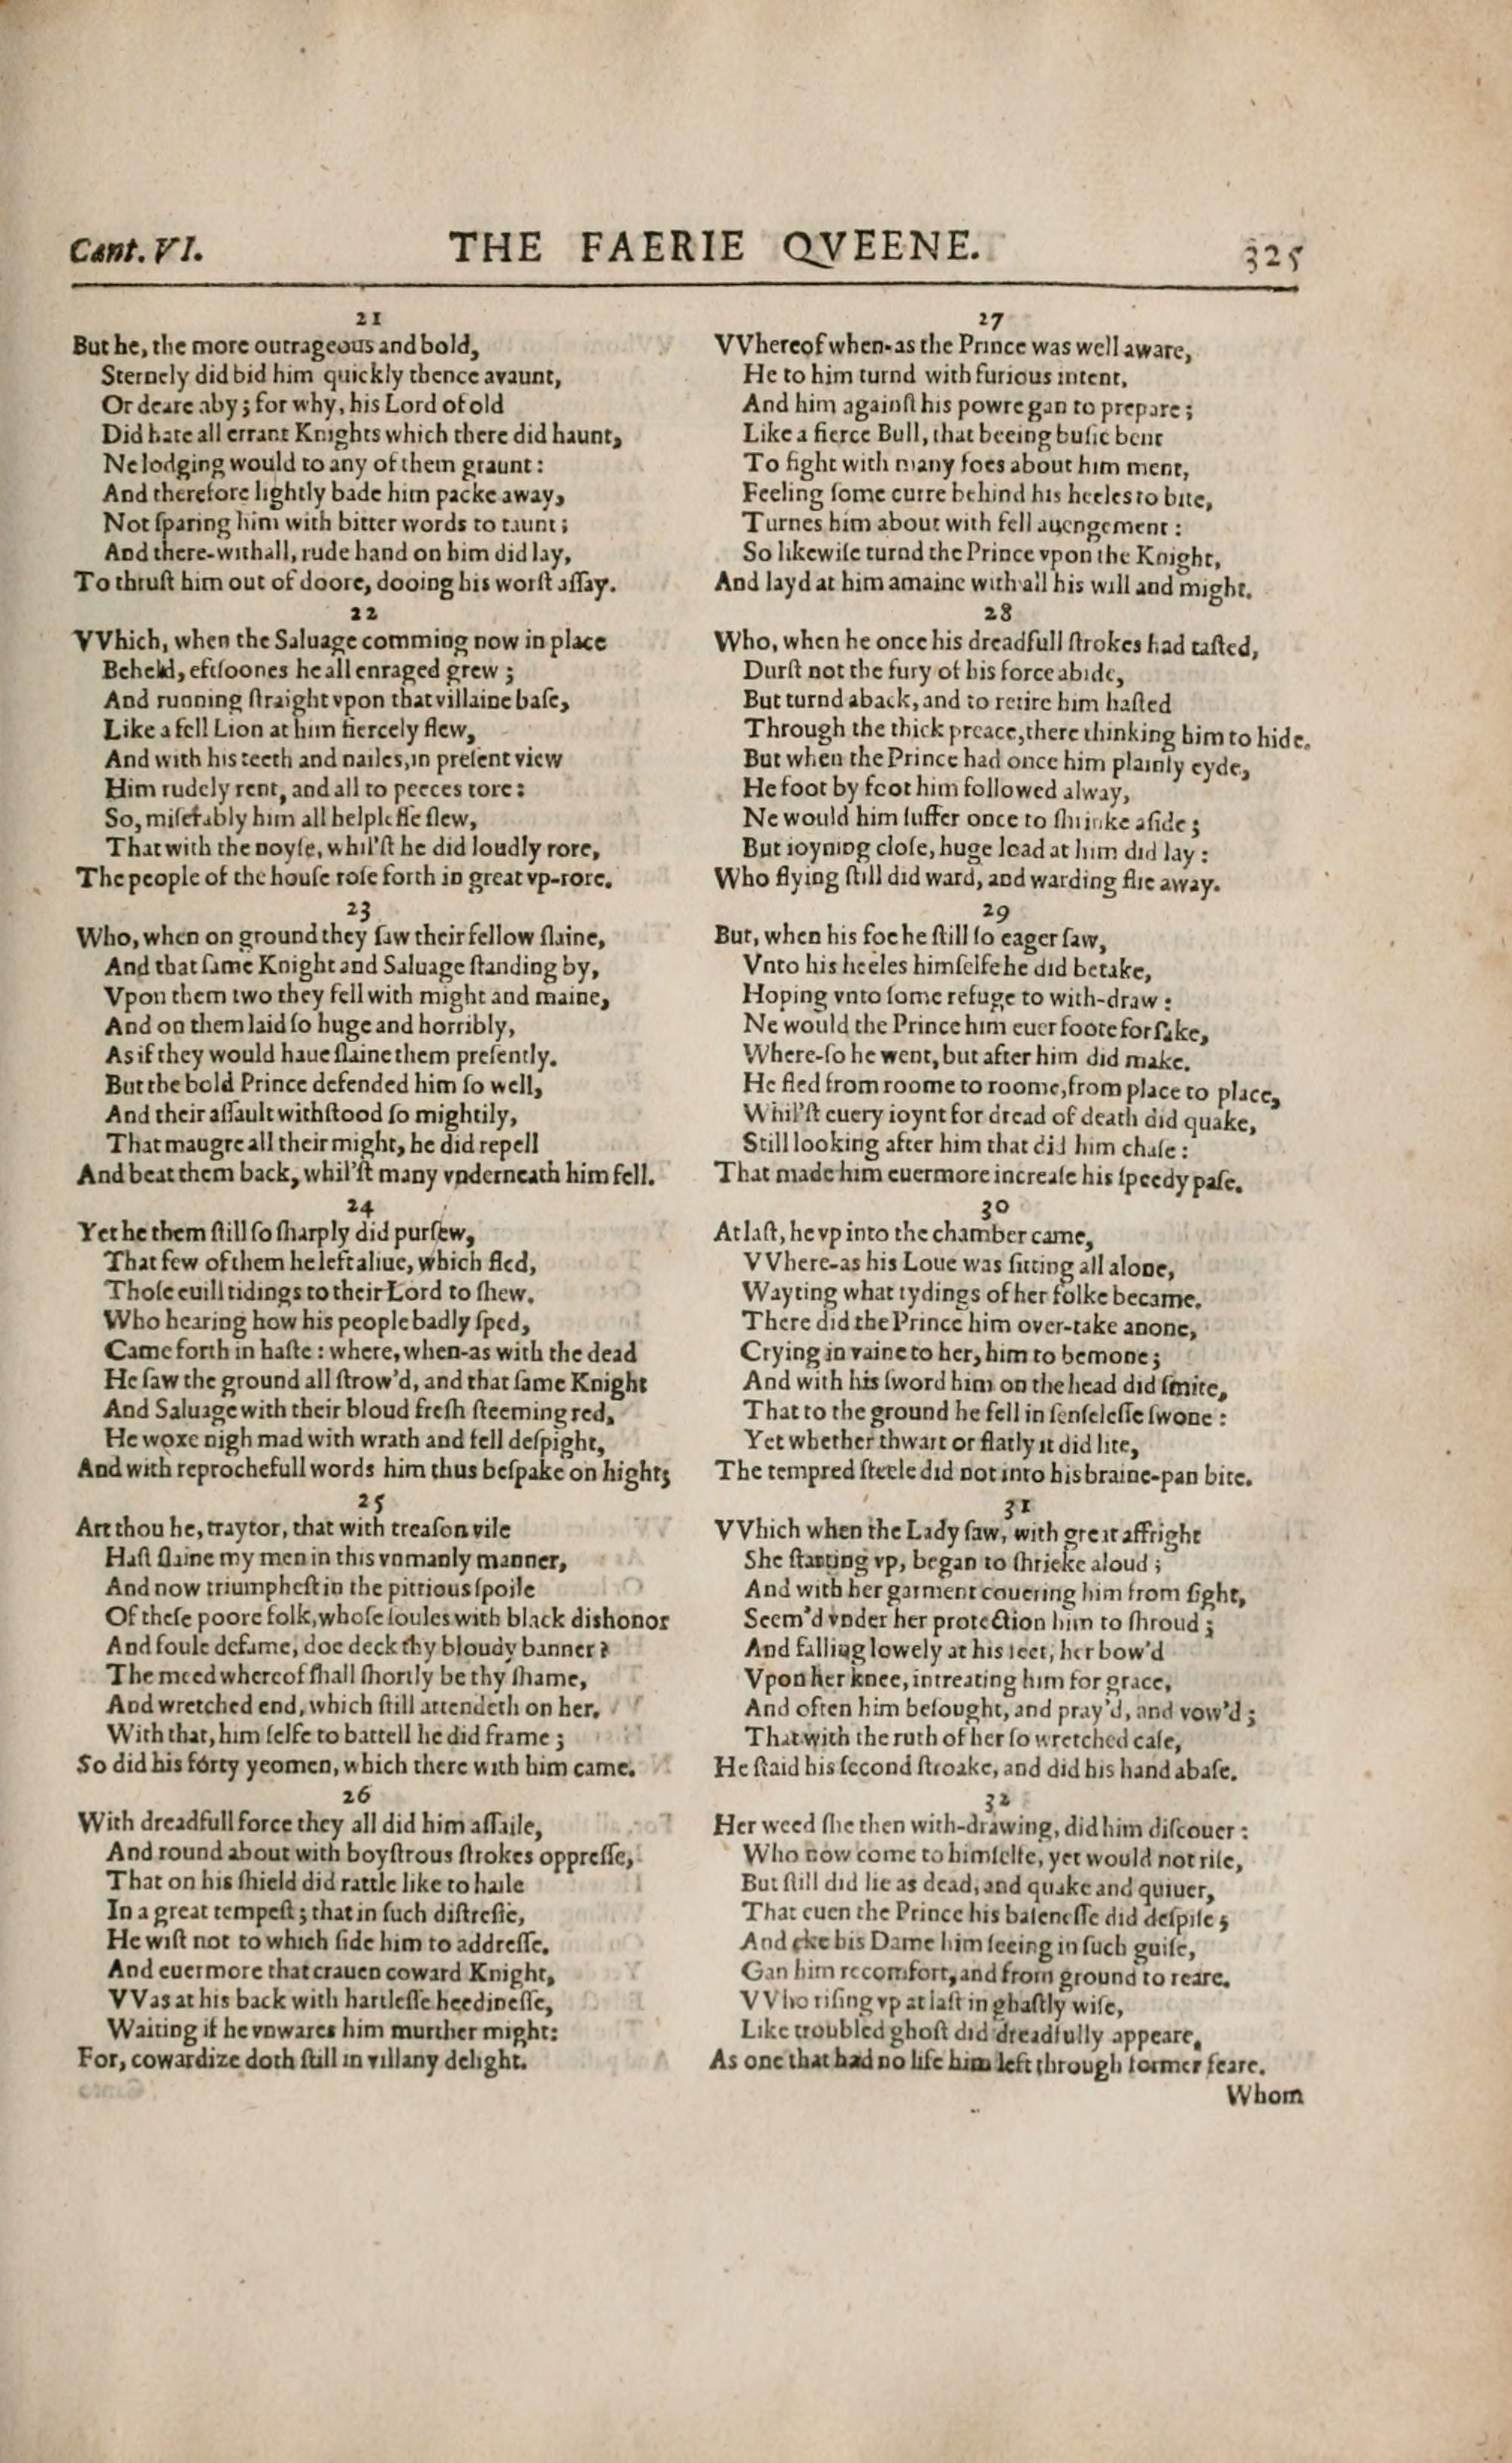 Cant. VI.
THE FAERIE QVEENE.
325
21
But he, the more outrageous and bold,
Sternely did bid him quickly thence avaunt,
Or deare aby; for why, his Lord of old
Did hate all errant Knights which there did haunt,
Ne lodging would to any of them graunt:
And therefore lightly bade him packe away,
Not ſparing him with bitter words to taunt;
And there-withall, rude hand on him did lay,
To thruſt him out of doore, dooing his worſt aſſay.
22
VVhich, when the Saluage comming now in place
Beheld, eftſoones he all enraged grew;
And running ſtraight vpon that villaine baſe,
Like a fell Lion at him fiercely flew,
And with his teeth and nailes, in preſent view
Him rudely rent, and all to peeces tore:
So, miſerably him all helpleſſe ſlew,
That with the noyſe, whil'ſt he did loudly rore,
The people of the houſe roſe forth in great vp-rore.
23
Who, when on ground they ſaw their fellow ſlaine,
And that ſame Knight and Saluage ſtanding by,
Vpon them two they fell with might and maine,
And on them laid ſo huge and horribly,
As if they would haue ſlaine them preſently.
But the bold Prince defended him ſo well,
And their aſſault withſtood ſo mightily,
That maugre all their might, he did repell
And beat them back, whil'ſt many vnderneath him fell.
24
Yet he them ſtill ſo ſharply did purſew,
That few of them he left aliue, which fled,
Thoſe euill tidings to their Lord to ſhew.
Who hearing how his people badly ſped,
Came forth in haſte: where, when-as with the dead
He ſaw the ground all ſtrow'd, and that ſame Knight
And Saluage with their bloud freſh ſteeming red,
He woxe nigh mad with wrath and fell deſpight,
And with reprochefull words him thus beſpake on hight;
25
Art thou he, traytor, that with treaſon vile
Haſt ſlaine my men in this vnmanly manner,
And now triumpheſt in the pittious ſpoile
Of theſe poore folk, whoſe ſoules with black dishonor
And foule defame, doe deck thy bloudy banner?
The meed whereof ſhall ſhortly be thy ſhame,
And wretched end, which ſtill attendeth on her.
With that, him ſelfe to battell he did frame;
So did his forty yeomen, which there with him came.
26
With dreadfull force they all did him aſſaile,
And round about with boyſtrous ſtrokes oppreſſe,
That on his ſhield did rattle like to haile
In a great tempeſt; that in ſuch diſtreſſe,
He wiſt not to which ſide him to addreſſe.
And euermore that crauen coward Knight,
VVas at his back with hartleſſe heedineſſe,
Waiting if he vnwares him murther might:
For, cowardize doth ſtill in villany delight.
27
VVhereof when-as the Prince was well aware,
He to him turnd with furious intent,
And him againſt his powre gan to prepare;
Like a fierce Bull, that beeing buſie bent
To fight with many foes about him ment,
Feeling ſome curre behind his heeles to bite,
Turnes him about with fell auengement:
So likewiſe turnd the Prince vpon the Knight,
And layd at him amaine with all his will and might.
28
Who, when he once his dreadfull ſtrokes had taſted,
Durſt not the fury of his force abide,
But turnd aback, and to retire him haſted
Through the thick preace, there thinking him to hide.
But when the Prince had once him plainly eyde,
He foot by foot him followed alway,
Ne would him ſuffer once to ſhrinke aſide;
But ioyning cloſe, huge lead at him did lay:
Who flying ſtill did ward, and warding flie away.
29
But, when his foe he ſtill ſo eager ſaw,
Vnto his heeles himſelfe he did betake,
Hoping vnto ſome refuge to with-draw:
Ne would the Prince him euer foote forſake,
Where-ſo he went, but after him did make.
He fled from roome to roome, from place to place,
Whil'ſt euery ioynt for dread of death did quake,
Still looking after him that did him chaſe:
That made him euermore increaſe his ſpeedy paſe.
30
At laſt, he vp into the chamber came,
VVhere-as his Loue was ſitting all alone,
Wayting what tydings of her folke became.
There did the Prince him over-take anone,
Crying in vaine to her, him to bemone;
And with his ſword him on the head did ſmite,
That to the ground he fell in ſenſeleſſe ſwone:
Yet whether thwart or flatly it did lite,
The tempred ſteele did not into his braine-pan bite.
31
VVhich when the Lady ſaw, with great affright
She ſtarting vp, began to ſhrieke aloud;
And with her garment couering him from ſight,
Seem'd vnder her protection him to ſhroud;
And falling lowely at his feet, her bow'd
Vpon her knee, intreating him for grace,
And often him beſought, and pray'd, and vow'd;
That with the ruth of her ſo wretched caſe,
He ſtaid his ſecond ſtroake, and did his hand abaſe.
32
Her weed ſhe then with-drawing, did him diſcouer:
Who now come to himſelfe, yet would not riſe,
But ſtill did lie as dead, and quake and quiuer,
That euen the Prince his baſeneſſe did deſpiſe;
And eke his Dame him ſeeing in ſuch guiſe,
Gan him recomfort, and from ground to reare.
VVho riſing vp at laſt in ghaſtly wiſe,
Like troubled ghoſt did dreadfully appeare,
As one that had no life him left through former feare.
Whom